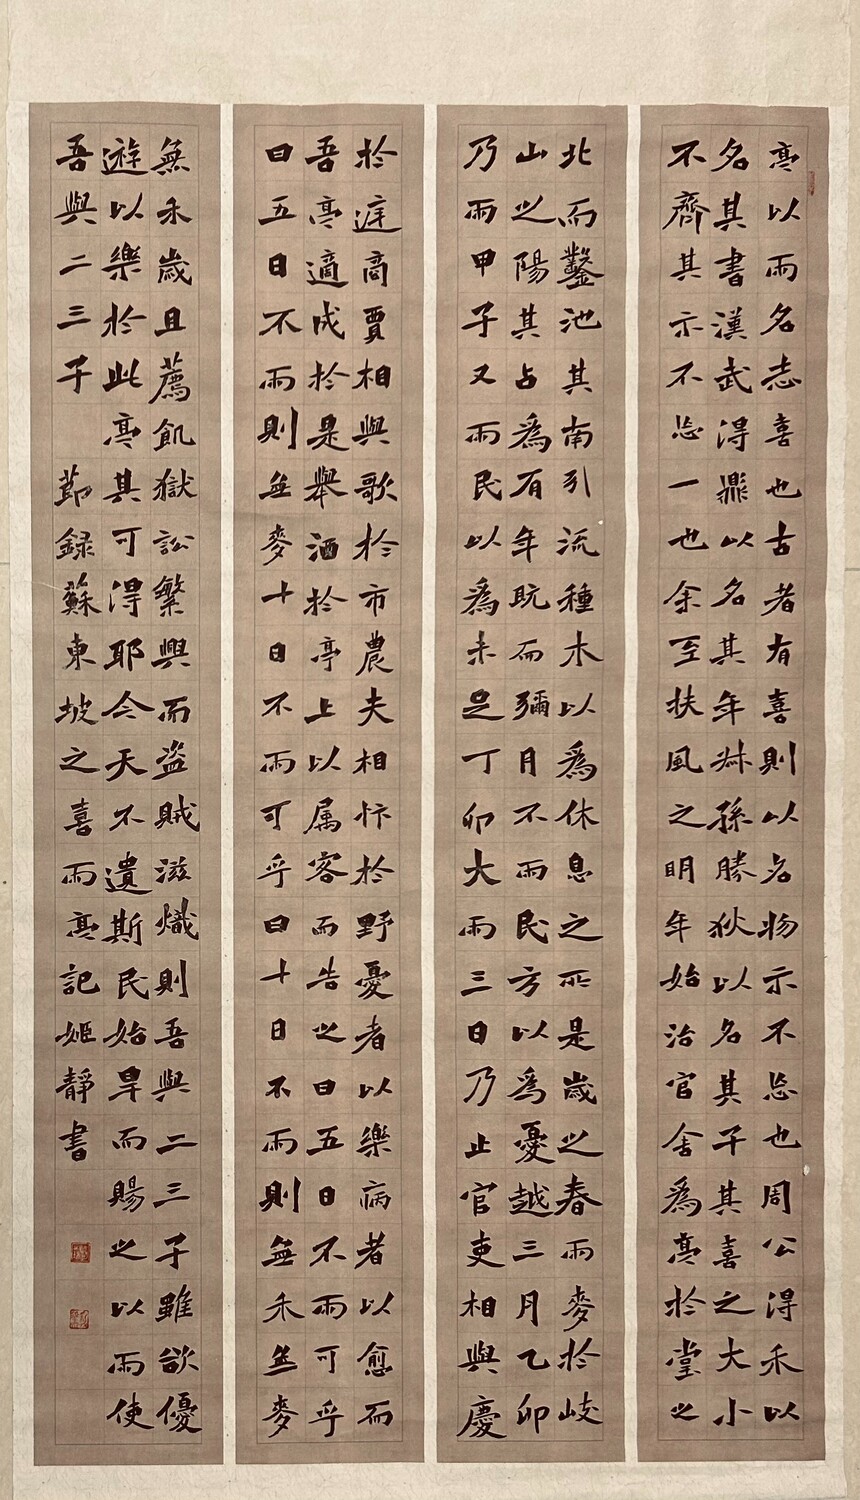 亭以雨名志喜也古者有喜則以名物示不忘也周公得禾以
名其書漢武得鼎以名其年叔孫勝狄以名其子其喜之大小
不齊其示不忘一也余至扶風之明年始治官舍爲亭於堂之
北而鑿池其南引流種木以爲休息之所是歲之春雨麥於岐
山之陽其占爲有年既而彌月不雨民方以爲憂越三月乙卯
乃雨甲子又雨民以爲未足丁卯大雨三日乃止官吏相與慶
於庭商賈相與歌於市農夫相忭於野憂者以樂病者以愈而
吾亭適成於是舉酒於亭上以属客而告之曰五日不雨可乎
曰五日不雨則無麥十日不雨可乎曰十日不雨則無禾無麥
無禾歲且薦飢獄訟繁興而盜賊滋熾則吾與二三子雖欲優
遊以樂於此亭其可得耶今天不遺斯民始旱而賜之以雨使
吾與二三子 節録蘇東坡之喜雨亭記姬靜書